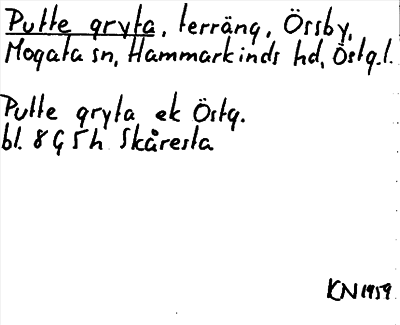 Putte gryta, terräng, Össby,
Mogata sn, Hammarkinds hd, Östg.l.
Putte gryta ek Östg.
bl. 8 G 5 h Skåresta
KN 1959